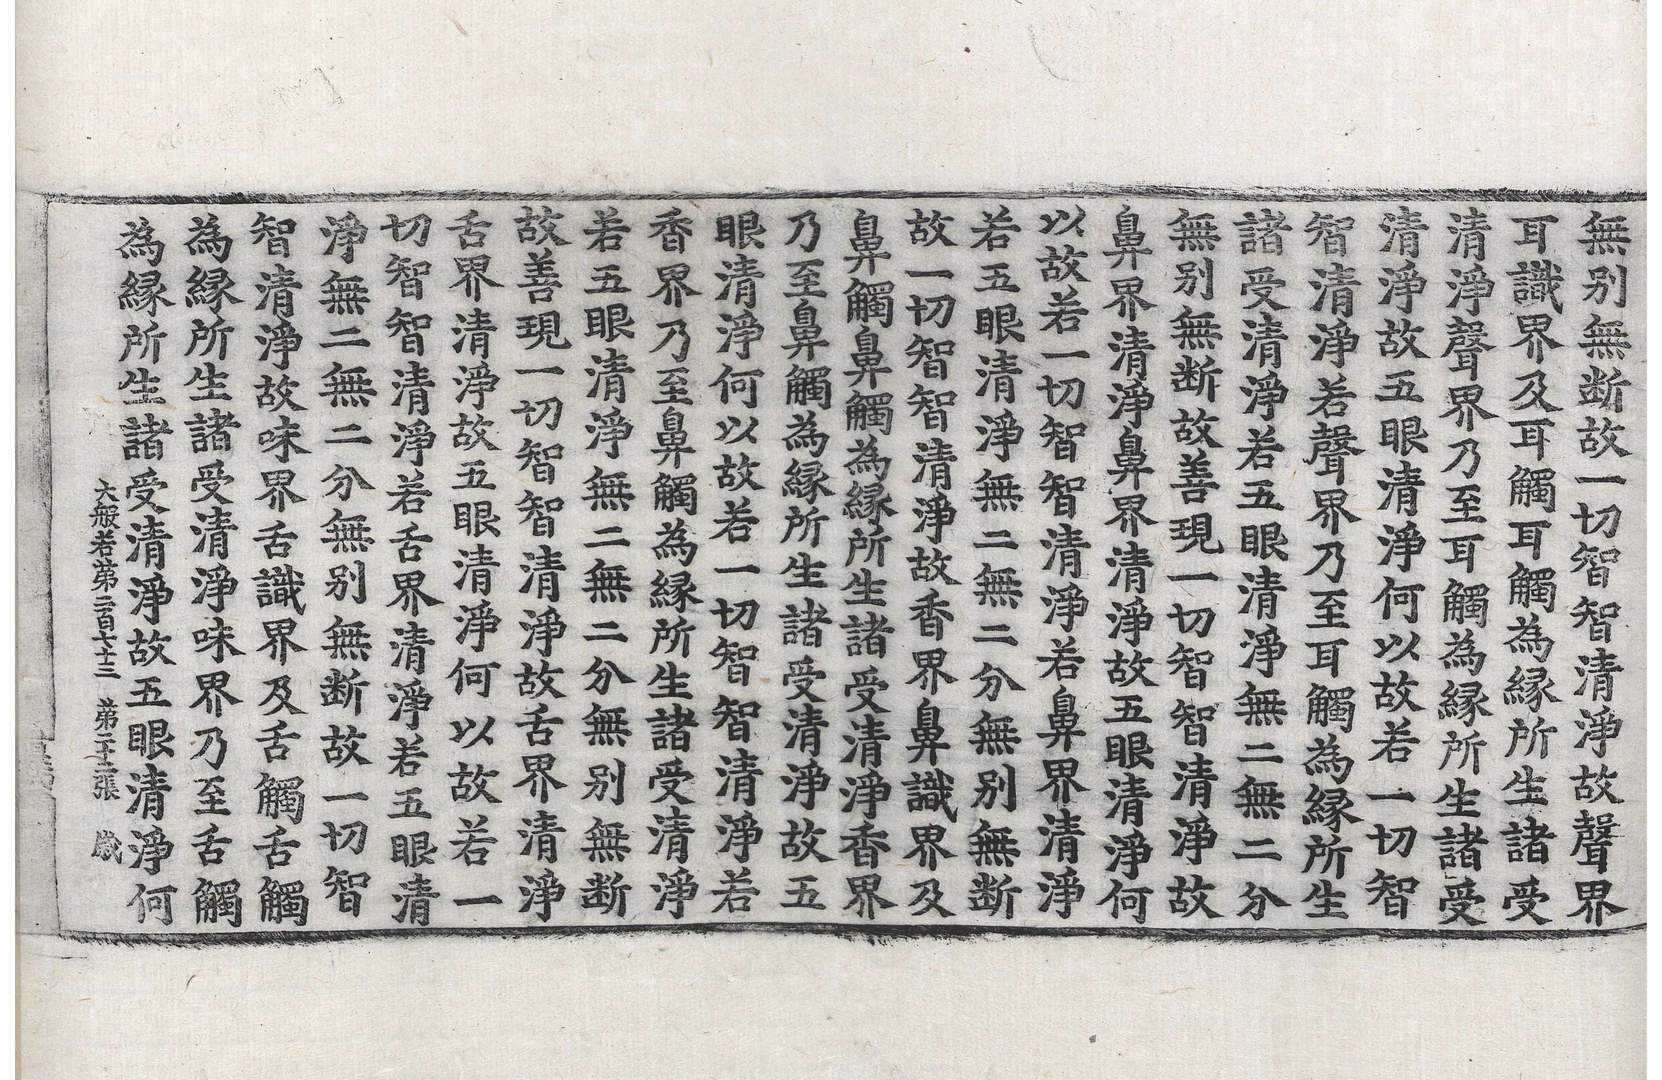 無别無断故一切智智清淨故聲界
耳識界及耳觸耳觸為縁所生諸受
清淨聲界乃至耳觸為縁所生諸受
清淨故五眼清淨何以故若一切智
智清淨若聲界乃至耳觸為縁所生
諸受清淨若五眼清淨無二無二分
無别無断故善現一切智智清淨故
鼻界清淨鼻界清淨故五眼清淨何
以故若一切智智清淨若鼻界清淨
若五眼清淨無二無二分無别無断
故一切智智清淨故香界鼻識界及
鼻觸鼻觸為縁所生諸受清淨香界
乃至鼻觸為縁所生諸受清淨故五
眼清淨何以故若一切智智清淨若
香界乃至鼻觸為縁所生諸受清淨
若五眼清淨無二無二分無别無断
故善現一切智智清淨故舌界清淨
舌界清淨故五眼清淨何以故若一
切智智清淨若舌界清淨若五眼清
淨無二無二分無别無断故一切智
智清淨故味界舌識界及舌觸舌觸
為縁所生諸受清淨味界乃至舌觸
為縁所生諸受清淨故五眼清淨何
大般若第二百七十三 第 張 歲